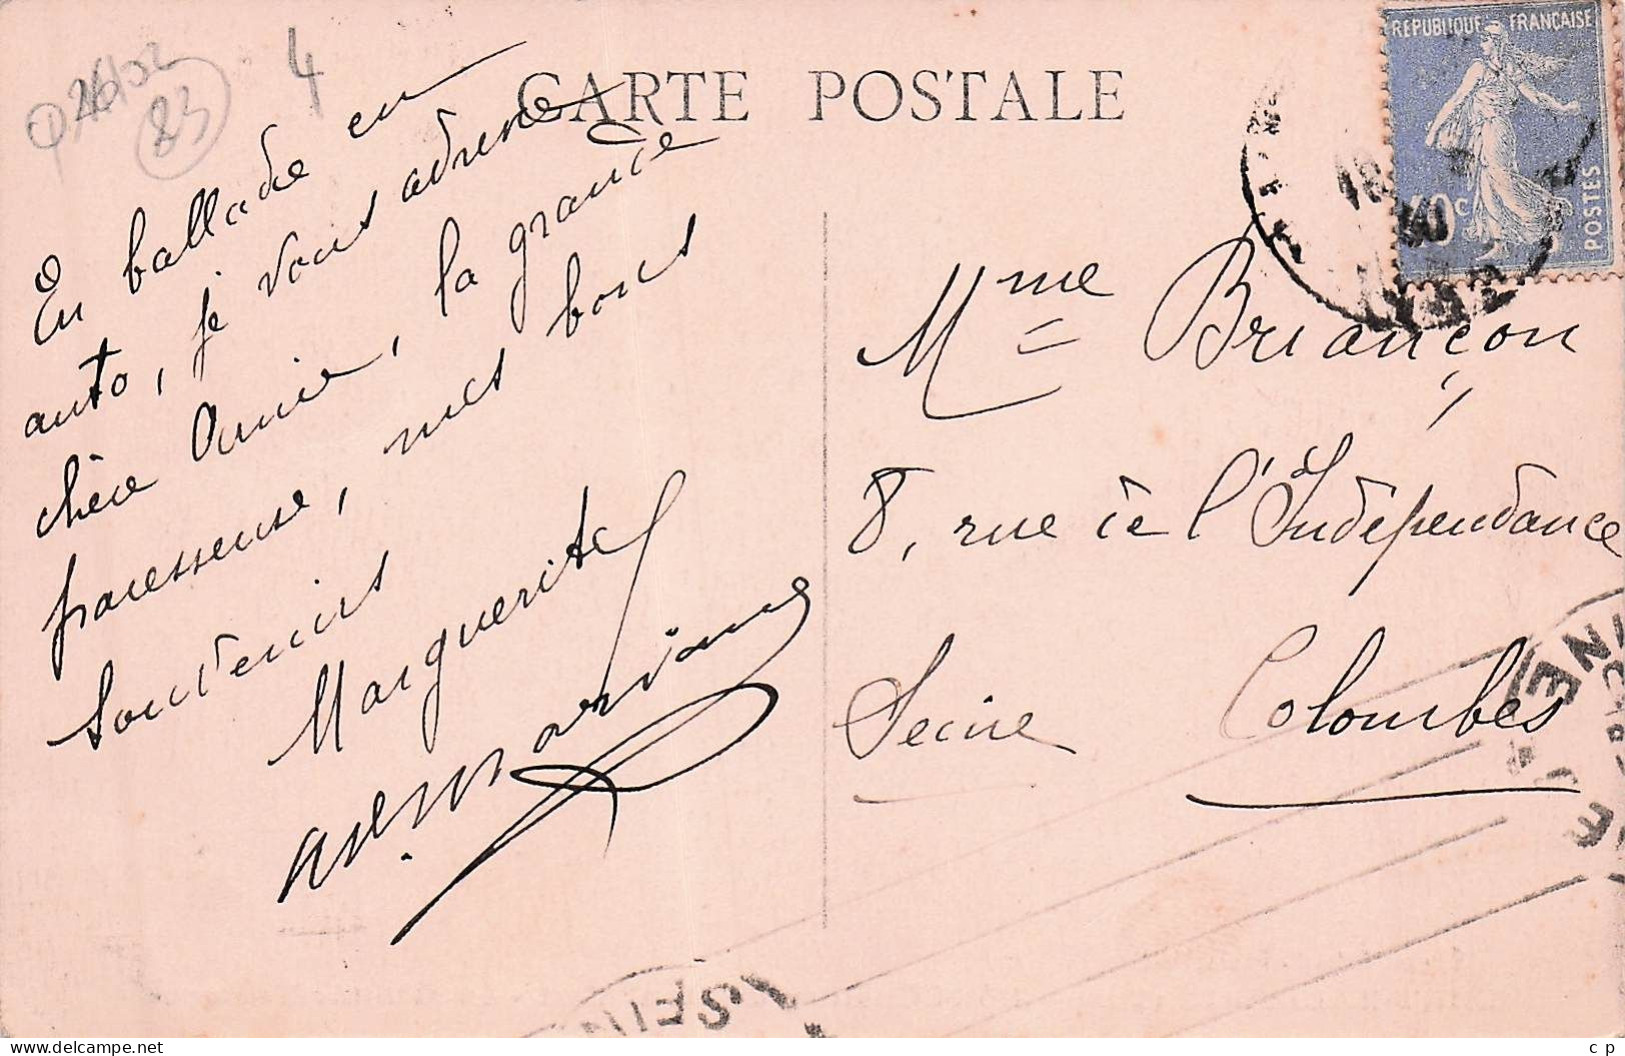 26/02
83
4
CARTE POSTALE
REPUBLIQUE FRANÇAISE
40c
POSTES
En ballade en
auto, je vous adresse
chère Amie, la grande
paresseuse, mes bons
souvenirs
Marguerite
Mme Briançon
8, rue de l'Indépendance
Seine Colombes
SEINE
delcampe.net
c p